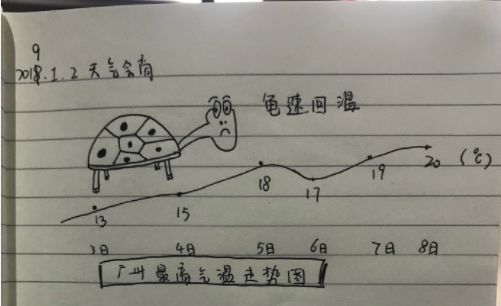 9
2018.1.2 天气会商
龟速回温
13 15 18 17 19 20 (℃)
3日 4日 5日 6日 7日 8日
广州最高气温走势图